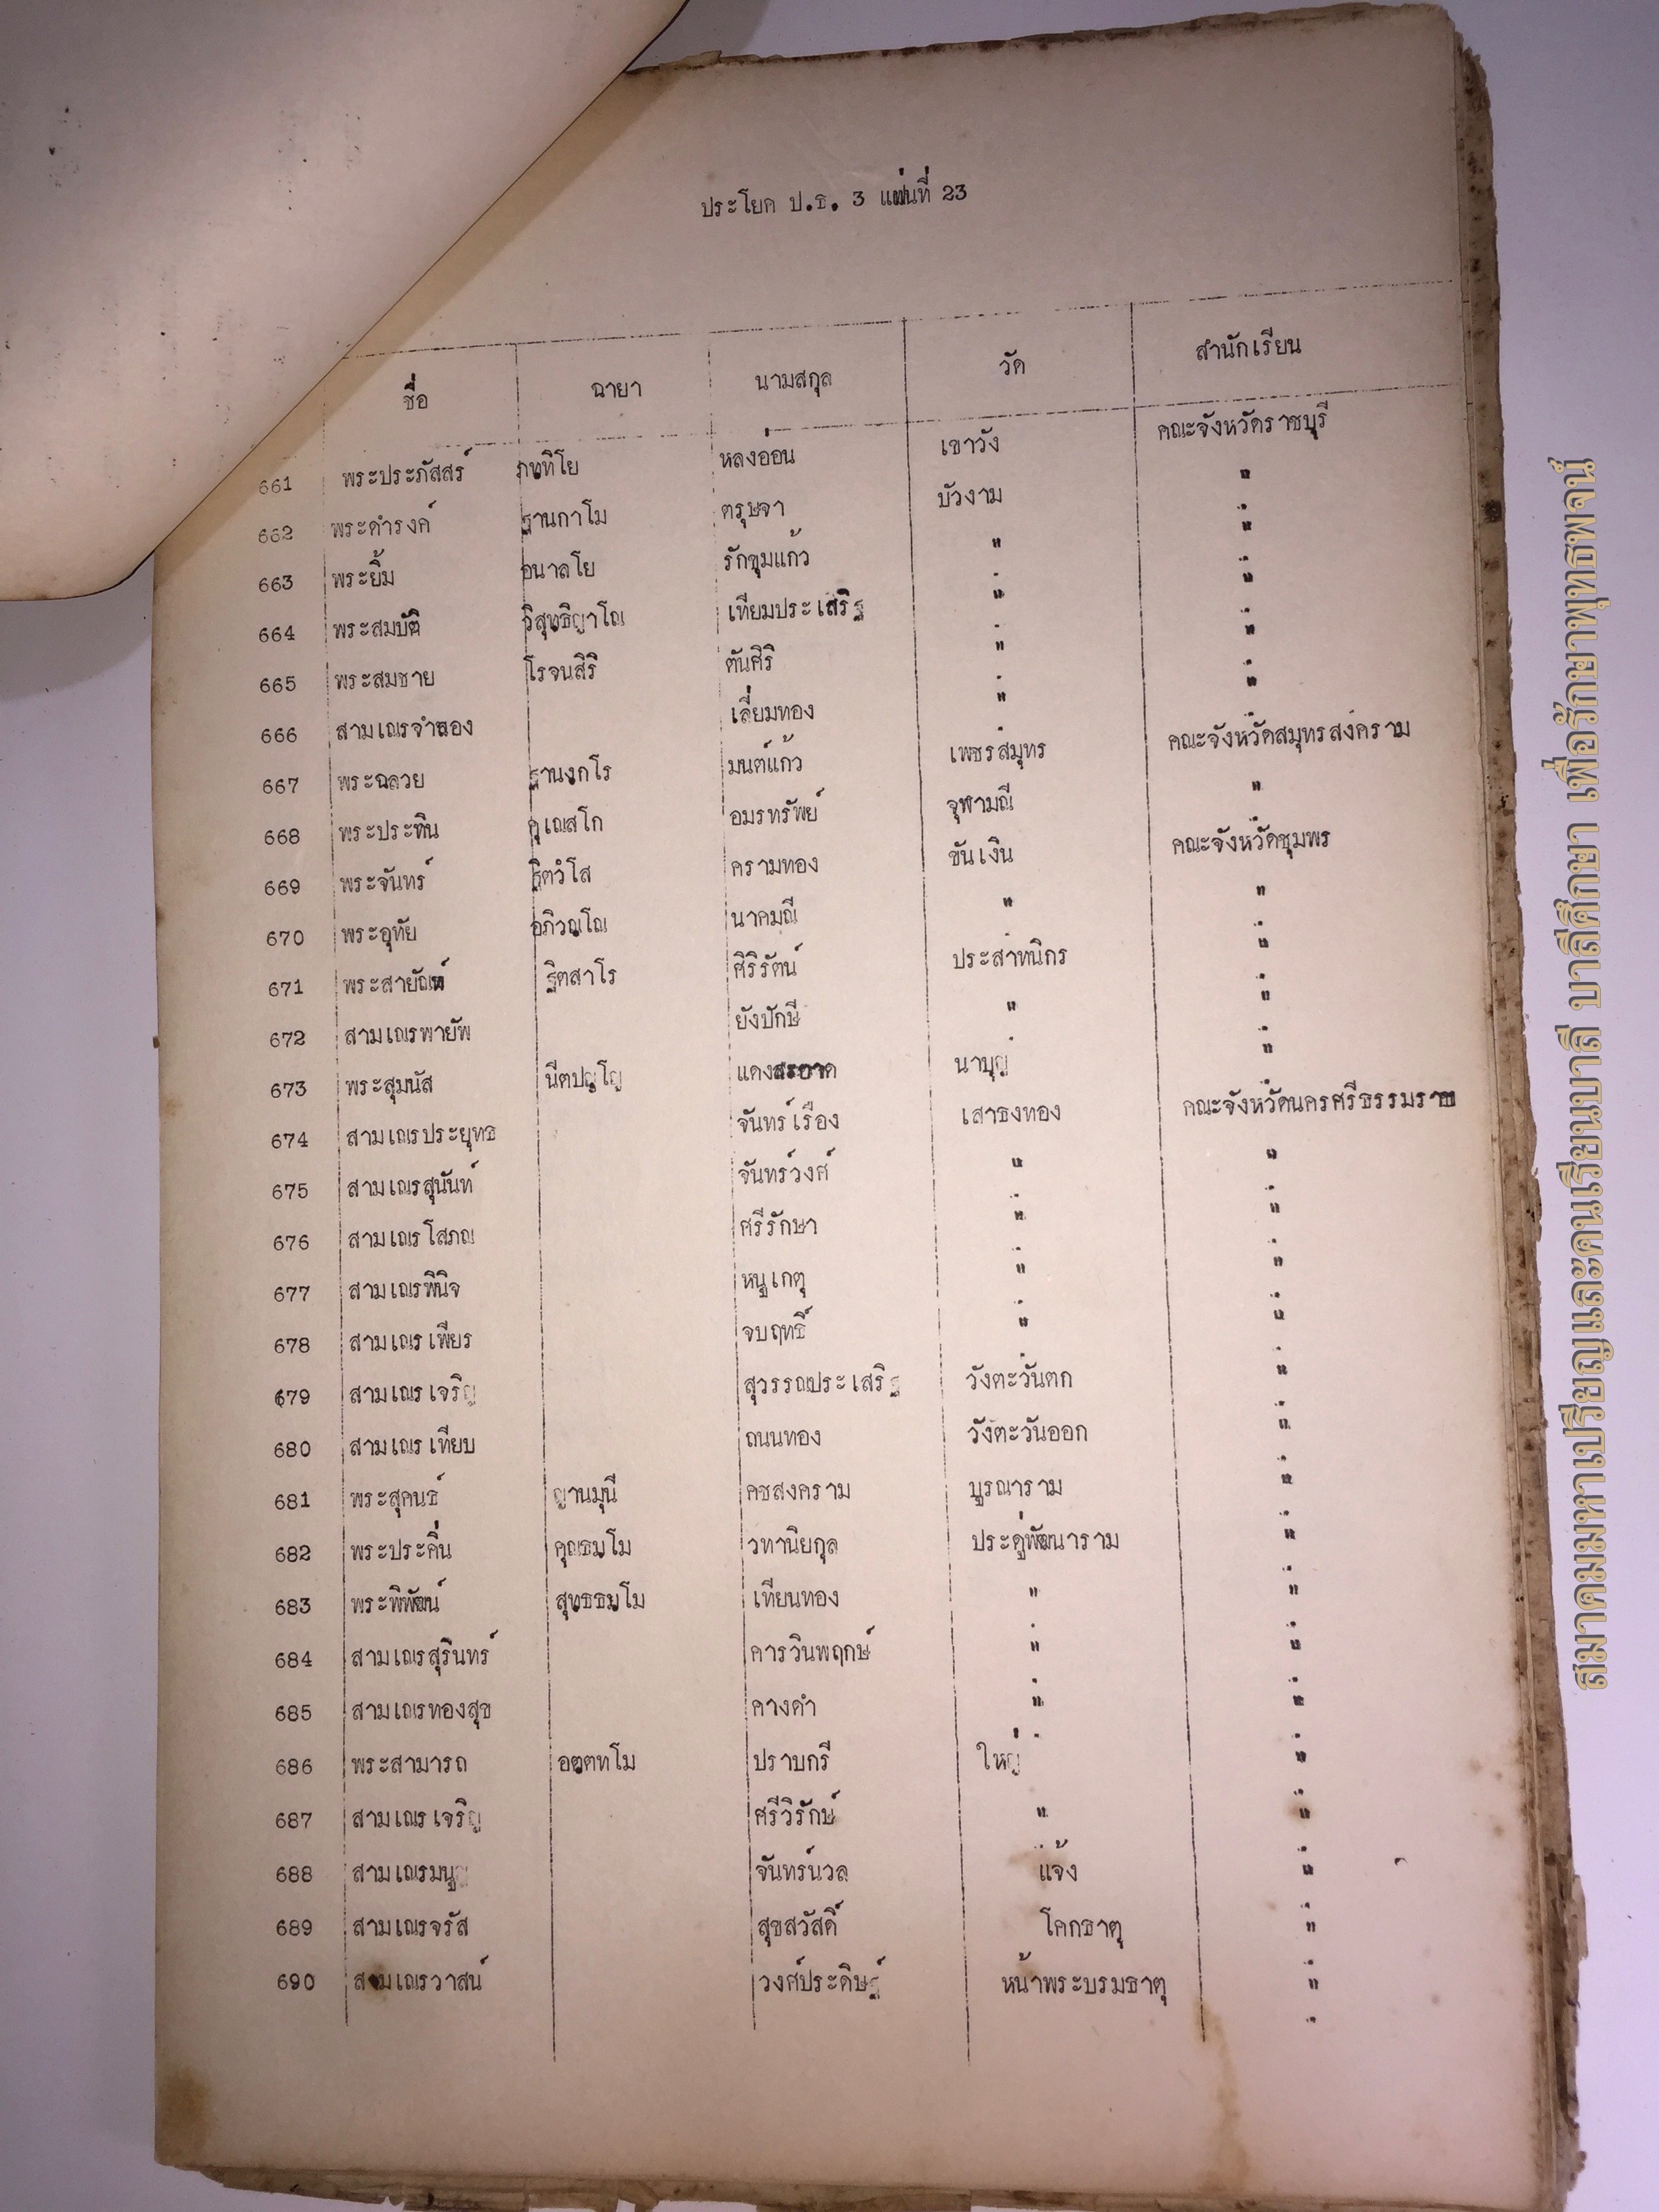 ประโยค ป.ธ. 3 แผ่นที่ 23
ชื่อ ฉายา นามสกุล วัด สำนักเรียน
661 พระประภัสสร์ ภทฺทิโย หลงอ่อน เขาวัง คณะจังหวัดราชบุรี
662 พระดำรงค์ ฐานกาโม ตรุษจา บัวงาม "
663 พระยิ้ม อนาลโย รักชุมแก้ว " "
664 พระสมบัติ วิสุทฺธิญาโณ เทียมประเสริฐ " "
665 พระสมชาย โรจนสิริ ตันศิริ " "
666 สามเณรจำลอง เลี่ยมทอง " "
667 พระฉลวย ฐานงฺกโร มนต์แก้ว เพชรสมุทร คณะจังหวัดสมุทรสงคราม
668 พระประทิน คุเณสโก อมรทรัพย์ จุฬามณี "
669 พระจันทร์ ฐิตวํโส ครามทอง ขันเงิน คณะจังหวัดชุมพร
670 พระอุทัย อภิวณฺโณ นาคมณี " "
671 พระสายัณห์ ฐิตสาโร ศิริรัตน์ ประสาทนิกร "
672 สามเณรพายัพ ยังปักษี " "
673 พระสุมนัส นีตปญฺโญ แดงสะอาด นาบุญ "
674 สามเณรประยุทธ จันทร์เรือง เสาธงทอง คณะจังหวัดนครศรีธรรมราช
675 สามเณรสุนันท์ จันทร์วงศ์ " "
676 สามเณรโสภณ ศรีรักษา " "
677 สามเณรพินิจ หนูเกตุ " "
678 สามเณรเพียร จบฤทธิ์ " "
679 สามเณรเจริญ สุวรรณประเสริฐ วังตะวันตก "
680 สามเณรเทียบ ถนนทอง วังตะวันออก "
681 พระสุคนธ์ ญานมุนี คชสงคราม บูรณาราม "
682 พระประคิ่น คุณธมฺโม วทานิยกุล ประดู่พัฒนาราม "
683 พระพิพัฒน์ สุทฺธธมฺโม เทียนทอง " "
684 สามเณรสุรินทร์ คารวินพฤกษ์ " "
685 สามเณรทองสุข คางดำ " "
686 พระสามารถ อตฺตทโม ปราบกรี ใหญ่ "
687 สามเณรเจริญ ศรีวิรักษ์ " "
688 สามเณรมนูญ จันทร์นวล แจ้ง "
689 สามเณรจรัส สุขสวัสดิ์ โคกธาตุ "
690 สามเณรวาสน์ วงศ์ประดิษฐ์ หน้าพระบรมธาตุ "
สมาคมมหาเปรียญและคนเรียนบาลี บาลีศึกษา เพื่อรักษาพุทธพจน์